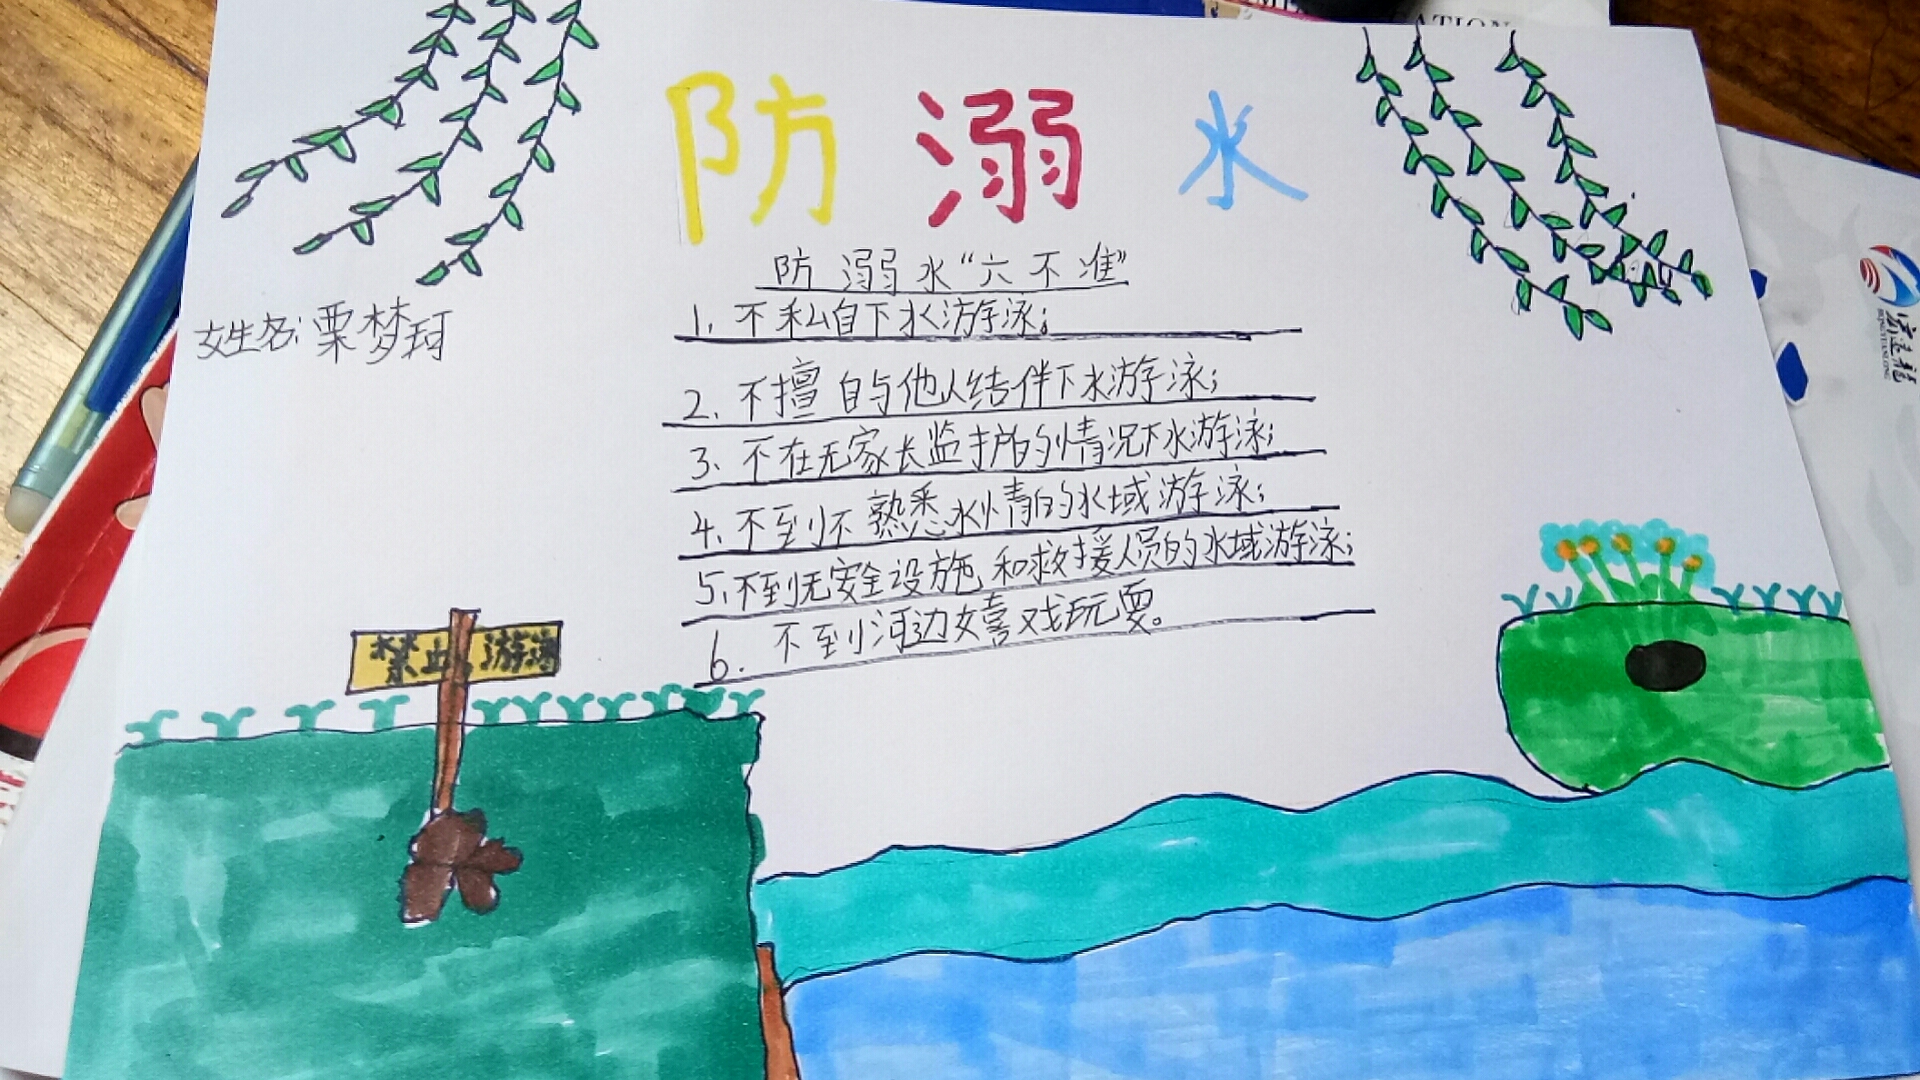 ATION
防溺水
防溺水“六不准”
姓名:栗梦珂
1、不私自下水游泳;
2、不擅自与他人结伴下水游泳;
3、不在无家长监护的情况下水游泳;
4、不到不熟悉水情的水域游泳;
5、不到无安全设施、和救援人员的水域游泳;
6.不到河边嬉戏玩耍。
禁止游泳